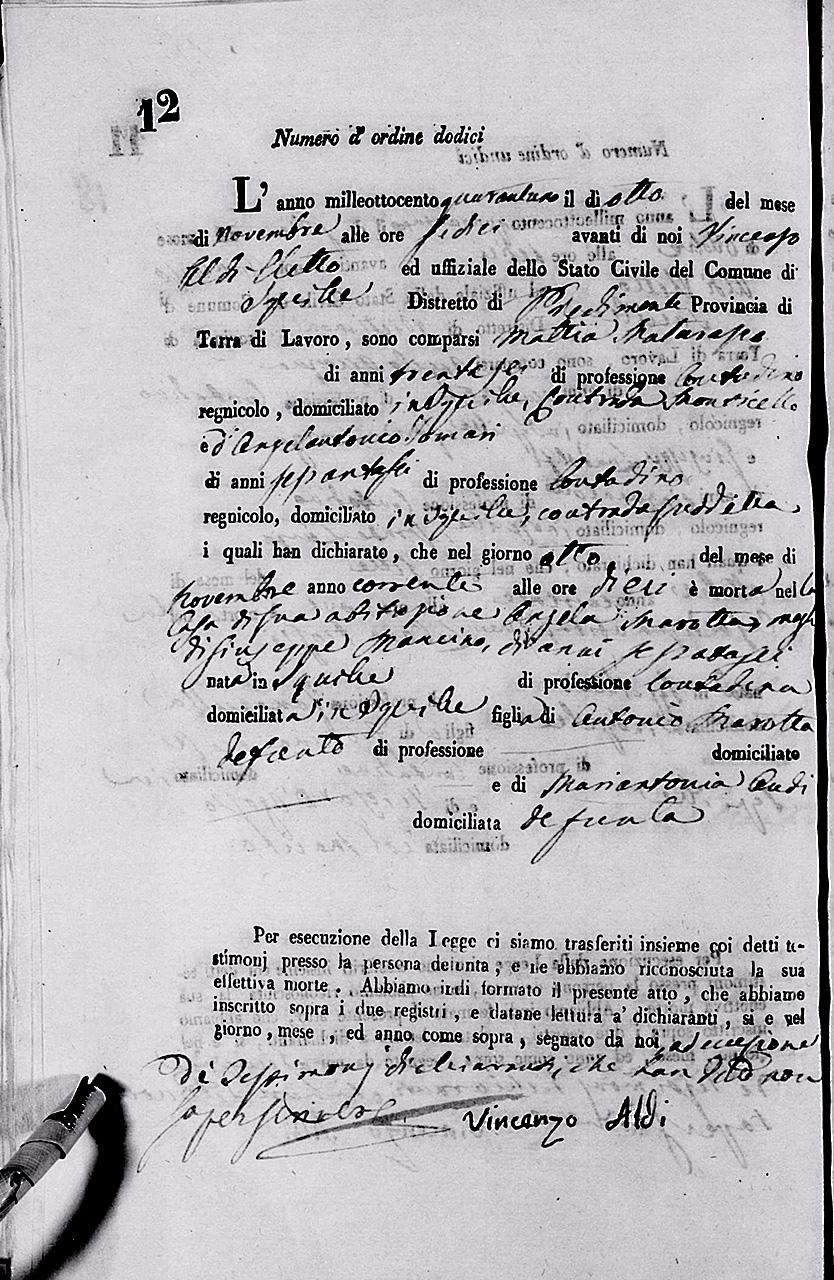 12
Numero d' ordine dodici
L' anno milleottocento quarantuno il dì otto del mese
di Novembre alle ore sedici avanti di noi Vincenzo
Aldi Eletto ed uffiziale dello Stato Civile del Comune di
Squille Distretto di Piedimonte Provincia di
Terra di Lavoro, sono comparsi Mattia Maturazo
di anni trentasei di professione Contadino
regnicolo, domiciliato in Squille, Contrada Monticello
ed Angelantonio
di anni di professione Contadino
regnicolo, domiciliato in Squille, contrada suddetta
i quali han dichiarato, che nel giorno otto del mese di
Novembre anno corrente alle ore dieci è morta nella
Casa di sua abitazione Angela Marotta, mogl
di Giuseppe Mancino, di anni
nata in Squille di professione Contadina
domiciliata in Squille figlia di Antonio Marotta
defunto di professione domiciliato
e di Mariantonia Audi
domiciliata defunta
Per esecuzione della Legge ci siamo trasferiti insieme coi detti te-
stimonj presso la persona defunta, e ne abbiamo riconosciuta la sua
effettiva morte. Abbiamo indi formato il presente atto, che abbiamo
inscritto sopra i due registri, e datane lettura a' dichiaranti, si e nel
giorno, mese, ed anno come sopra, segnato da noi, ad eccezione
De Testimonj dichiaranti, che han detto non
saper scrivere
Vincenzo Aldi